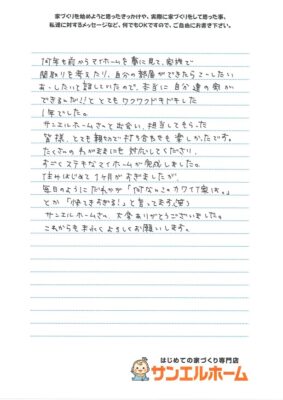 家づくりを始めようと思ったきっかけや、実際に家づくりをして思った事、
私達に対するメッセージなど、何でもOKですので、ご自由にお書き下さい。
何年も前からマイホームを夢に見て、家族で
間取りを考えたり、自分の部屋ができたらこーしたい
あーしたいと話していたので、本当に自分達の家が
できるんだ!!と とてもワクワクドキドキした
1年でした。
サンエルホームさんと出会い、担当してもらった
皆様、とても親切で打ち合わせも楽しかったです。
たくさんのわがままにも対応してくださり、
すごくステキなマイホームが完成しました。
住みはじめて1ヶ月がすぎましたが、
毎日のようにだれかが「何なんこのカワイイ家は。」
とか「快てきすぎる!」と言ってます(笑)
サンエルホームさん、大変ありがとうございました。
これからも末永くよろしくお願いします。
はじめての家づくり専門店
サンエルホーム